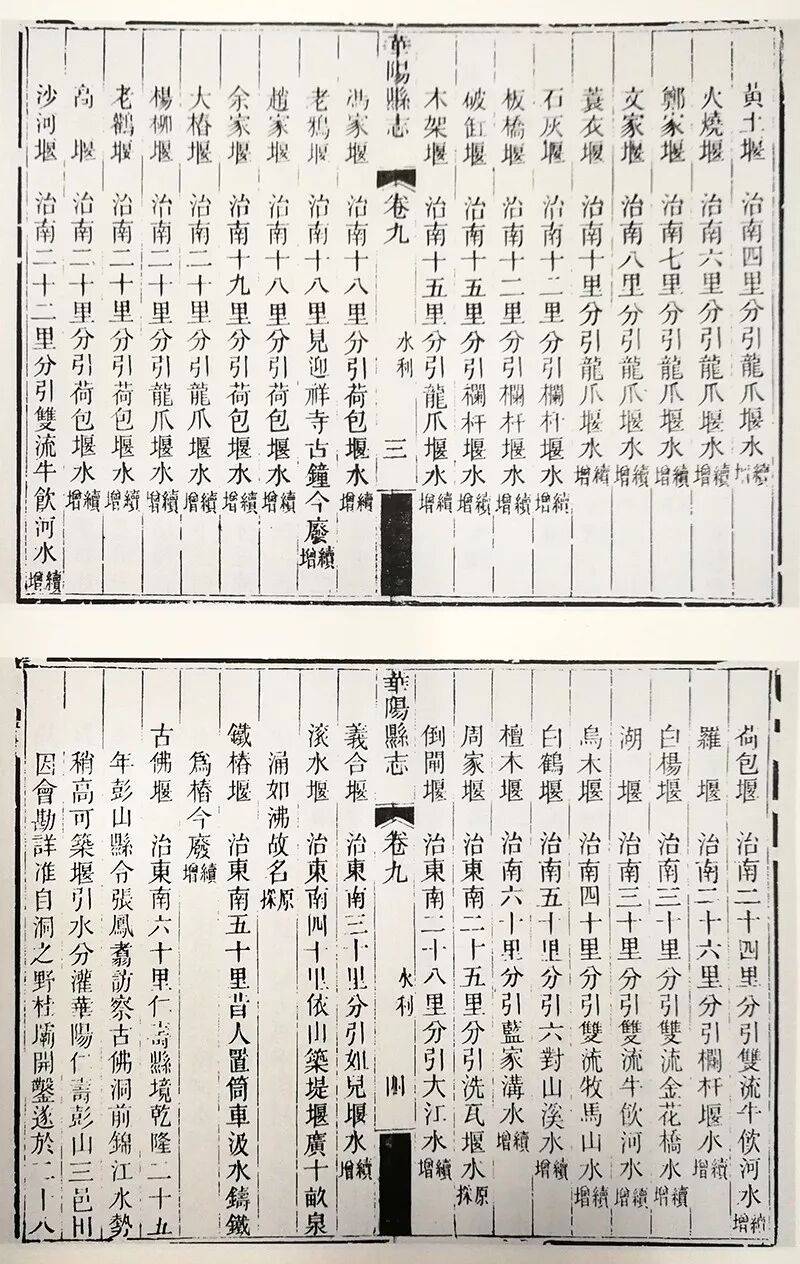 黃土堰 治南四里分引龍爪堰水續增
火燒堰 治南六里分引龍爪堰水續增
鄭家堰 治南七里分引龍爪堰水續增
文家堰 治南八里分引龍爪堰水續增
蓑衣堰 治南十里分引龍爪堰水續增
石灰堰 治南十二里分引欄杆堰水續增
板橋堰 治南十二里分引欄杆堰水續增
破缸堰 治南十五里分引欄杆堰水續增
木架堰 治南十五里分引龍爪堰水續增
華陽縣志 卷九 水利 三
馮家堰 治南十八里分引荷包堰水續增
老鴉堰 治南十八里見迎祥寺古鐘今廢續增
趙家堰 治南十八里分引荷包堰水續增
余家堰 治南十九里分引荷包堰水續增
大椿堰 治南二十里分引龍爪堰水續增
楊柳堰 治南二十里分引龍爪堰水續增
老鸛堰 治南二十里分引荷包堰水續增
高堰 治南二十里分引荷包堰水續增
沙河堰 治南二十二里分引雙流牛飲河水續增
荷包堰 治南二十四里分引雙流牛飲河水續增
羅堰 治南二十六里分引欄杆堰水續增
白楊堰 治南三十里分引雙流金花橋水續增
湖堰 治南三十里分引雙流牛飲河水續增
烏木堰 治南四十里分引雙流牧馬山水續增
白鶴堰 治南五十里分引六對山溪水續增
檀木堰 治南六十里分引藍家溝水續增
周家堰 治東南二十五里分引洗瓦堰水原採
倒閘堰 治東南二十八里分引大江水續增
華陽縣志 卷九 水利 四
義合堰 治東南三十里分引姐兒堰水續增
滾水堰 治東南四十里依山築堤堰廣十畝泉
涌如沸故名原採
鐵椿堰 治東南五十里昔人置筒車汲水鑄鐵
為椿今廢續增
古佛堰 治東南六十里仁壽縣境乾隆二十五
年彭山縣令張鳳翥訪察古佛洞前錦江水勢
稍高可築堰引水分灌華陽仁壽彭山三邑田
因會勘詳准自洞之野桂壩開鑿遂於二十八